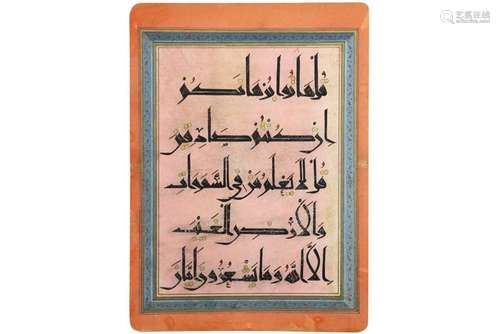 قل هاتوا برهانكم
ان كنتم صادقين
قل لا يعلم من في السموات
والارض الغيب
الا الله وما يشعرون ايان
艺狐在线